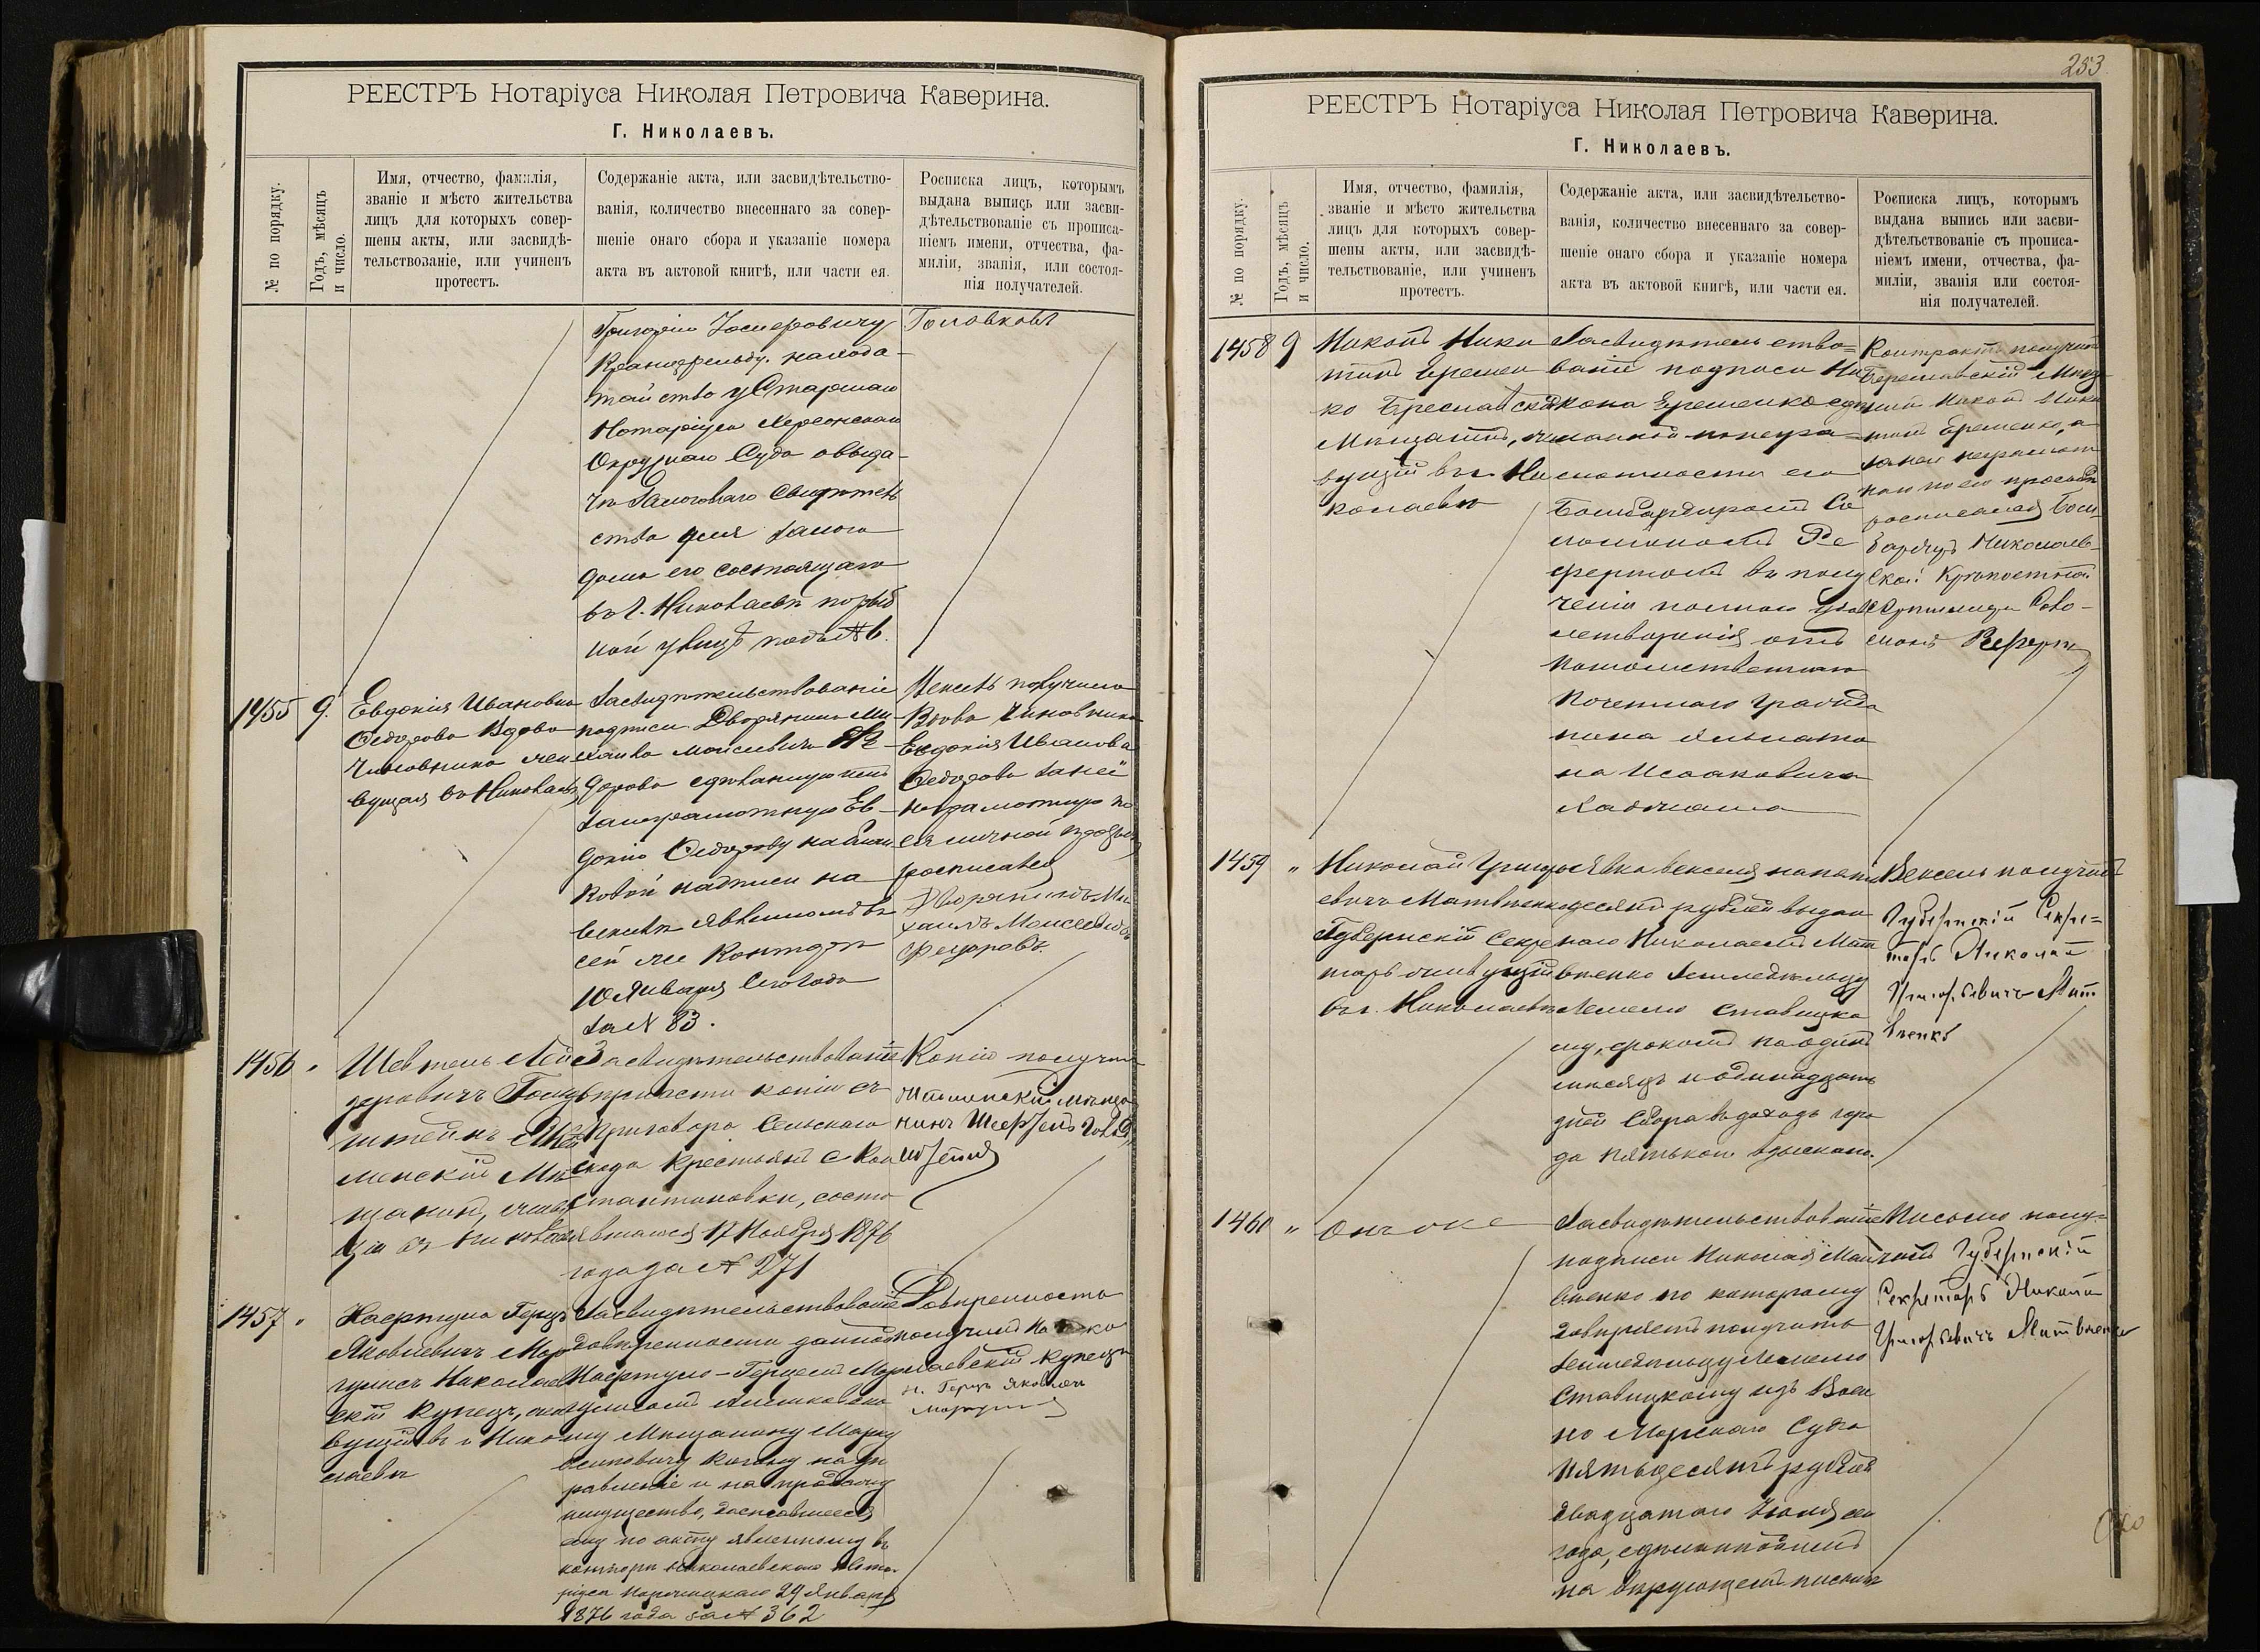 РЕЕСТРЪ Нотаріуса Николая Петровича Каверина.
Г. Николаевъ.
№ по порядку.
Годъ, мѣсяцъ
и число.
Имя, отчество, фамилія,
званіе и мѣсто жительства
лицъ для которыхъ совер-
шены акты, или засвидѣ-
тельствованіе, или учиненъ
протестъ.
Содержаніе акта, или засвидѣтельство-
ванія, количество внесеннаго за совер-
шеніе онаго сбора и указаніе номера
акта въ актовой книгѣ, или части ея.
Росписка лицъ, которымъ
выдана выпись или засви-
дѣтельствованіе съ прописа-
ніемъ имени, отчества, фа-
миліи, званія, или состоя-
нія получателей.
Григорію
находа-
тайство у Старшаго
Нотаріуса Херсонскаго
Окружнаго Суда о выда-
чѣ Залоговаго Свидѣтель
ства для залога
дома его состоящаго
въ г. Николаевѣ по Рыб
ной улицѣ подъ № 6.
Головковъ
1455
9.
Евдокія Ивановна
Федорова Вдова
Чиновника жи
вущая въ Николаевѣ
Засвидѣтельствованіе
подписи Дворянина Ми
хаила Моисеевича Фе
дорова сдѣланную имъ
за неграмотную Ев-
докію Федорову на блан
ковой надписи на
векселѣ явленномъ въ
сей же Конторѣ
10 Января сего года
за № 83.
Вексель получила
Вдова Чиновника
Евдокія Иванова
Федорова за неё
неграмотную по
ея личной просьбѣ
росписался
Дворянинъ Ми
хаилъ Моисеевичъ
Федоровъ.
1456
"
Шевтель Лей
зеровичъ Гольд
штейнъ
менскій Мѣ
щанинъ, живу
щій въ Николаевѣ
Засвидѣтельствованіе
вѣрности копіи съ
приговора Сельскаго
схода Крестьянъ с. Кон
стантиновки, состо
явшагося 17 Ноября 1876
года за № 271
Копію получилъ
мѣща
нинъ Шевтель Гольд
штейнъ
1457
"
Герцъ
Яковлевичъ Мар
гулисъ Николаев
скій Купецъ, жи
вущій въ г. Нико
лаевѣ
Засвидѣтельствованіе
довѣренности данной
Герцемъ Мар
гулисомъ
му Мѣщанину Марку
Осиповичу Когану на уп
равленіе и на продажу
имущества, доставшееся
ему по акту явленному въ
конторѣ Николаевскаго Нота
ріуса 29 Января
1876 года за № 362
Довѣренность
получилъ Нико
лаевскій Купецъ
Герцъ Яковлев
Маргулисъ
253
РЕЕСТРЪ Нотаріуса Николая Петровича Каверина.
Г. Николаевъ.
№ по порядку.
Годъ, мѣсяцъ
и число.
Имя, отчество, фамилія,
званіе и мѣсто жительства
лицъ для которыхъ совер-
шены акты, или засвидѣ-
тельствованіе, или учиненъ
протестъ.
Содержаніе акта, или засвидѣтельство-
ванія, количество внесеннаго за совер-
шеніе онаго сбора и указаніе номера
акта въ актовой книгѣ, или части ея.
Росписка лицъ, которымъ
выдана выпись или засви-
дѣтельствованіе съ прописа-
ніемъ имени, отчества, фа-
миліи, званія или состоя-
нія получателей.
1458
9
Никонъ Ники
тинъ Еремен
ко Бериславскій
Мѣщанинъ, жи
вущій въ г. Ни
колаевѣ
Засвидѣтельство=
ваніе подписи Ни
кона Еременко сдѣ
ланной по негра=
мотности его
Бомбардиромъ Со
ломономъ Ре
фертомъ въ полу
ченіи полнаго удов
летворенія отъ
потомственнаго
почетнаго гражда
нина
на Исааковича
Контрактъ получилъ
Бериславскій Мѣща
нинъ Никонъ Ники
тинъ Еременко, а
за ней неграмот
наго по его просьбѣ
росписался Бом
бардиръ Николаев-
ской Крѣпостной
Артиллеріи Соло-
монъ Рефертъ
1459
"
Николай Григорь
евичъ Матвѣенко
Губернскій Секре
тарь живущій
въ г. Николаевѣ
Явка векселя на пять
десятъ рублей выдан
наго Николаемъ Мат
вѣенко Землевладѣльцу
Ставицко
му, срокомъ на одинъ
мѣсяцъ и одинадцать
дней Сбора въ доходъ горо
да пять коп. взыскано.
Вексель получилъ
Губернскій Секре=
тарь Николай
Григорьевичъ Мат
вѣенко
1460
"
Онъ же
Засвидѣтельствованіе
подписи Николая Мат
вѣенко по которому
довѣряетъ получить
Ставицкому изъ Воен
но Морскаго Суда
пятьдесятъ рублей
двадцатаго Іюля сего
года,
на вѣрующемъ письмѣ
Письмо полу=
чилъ Губернскій
Секретарь Николай
Григорьевичъ Матвѣенко